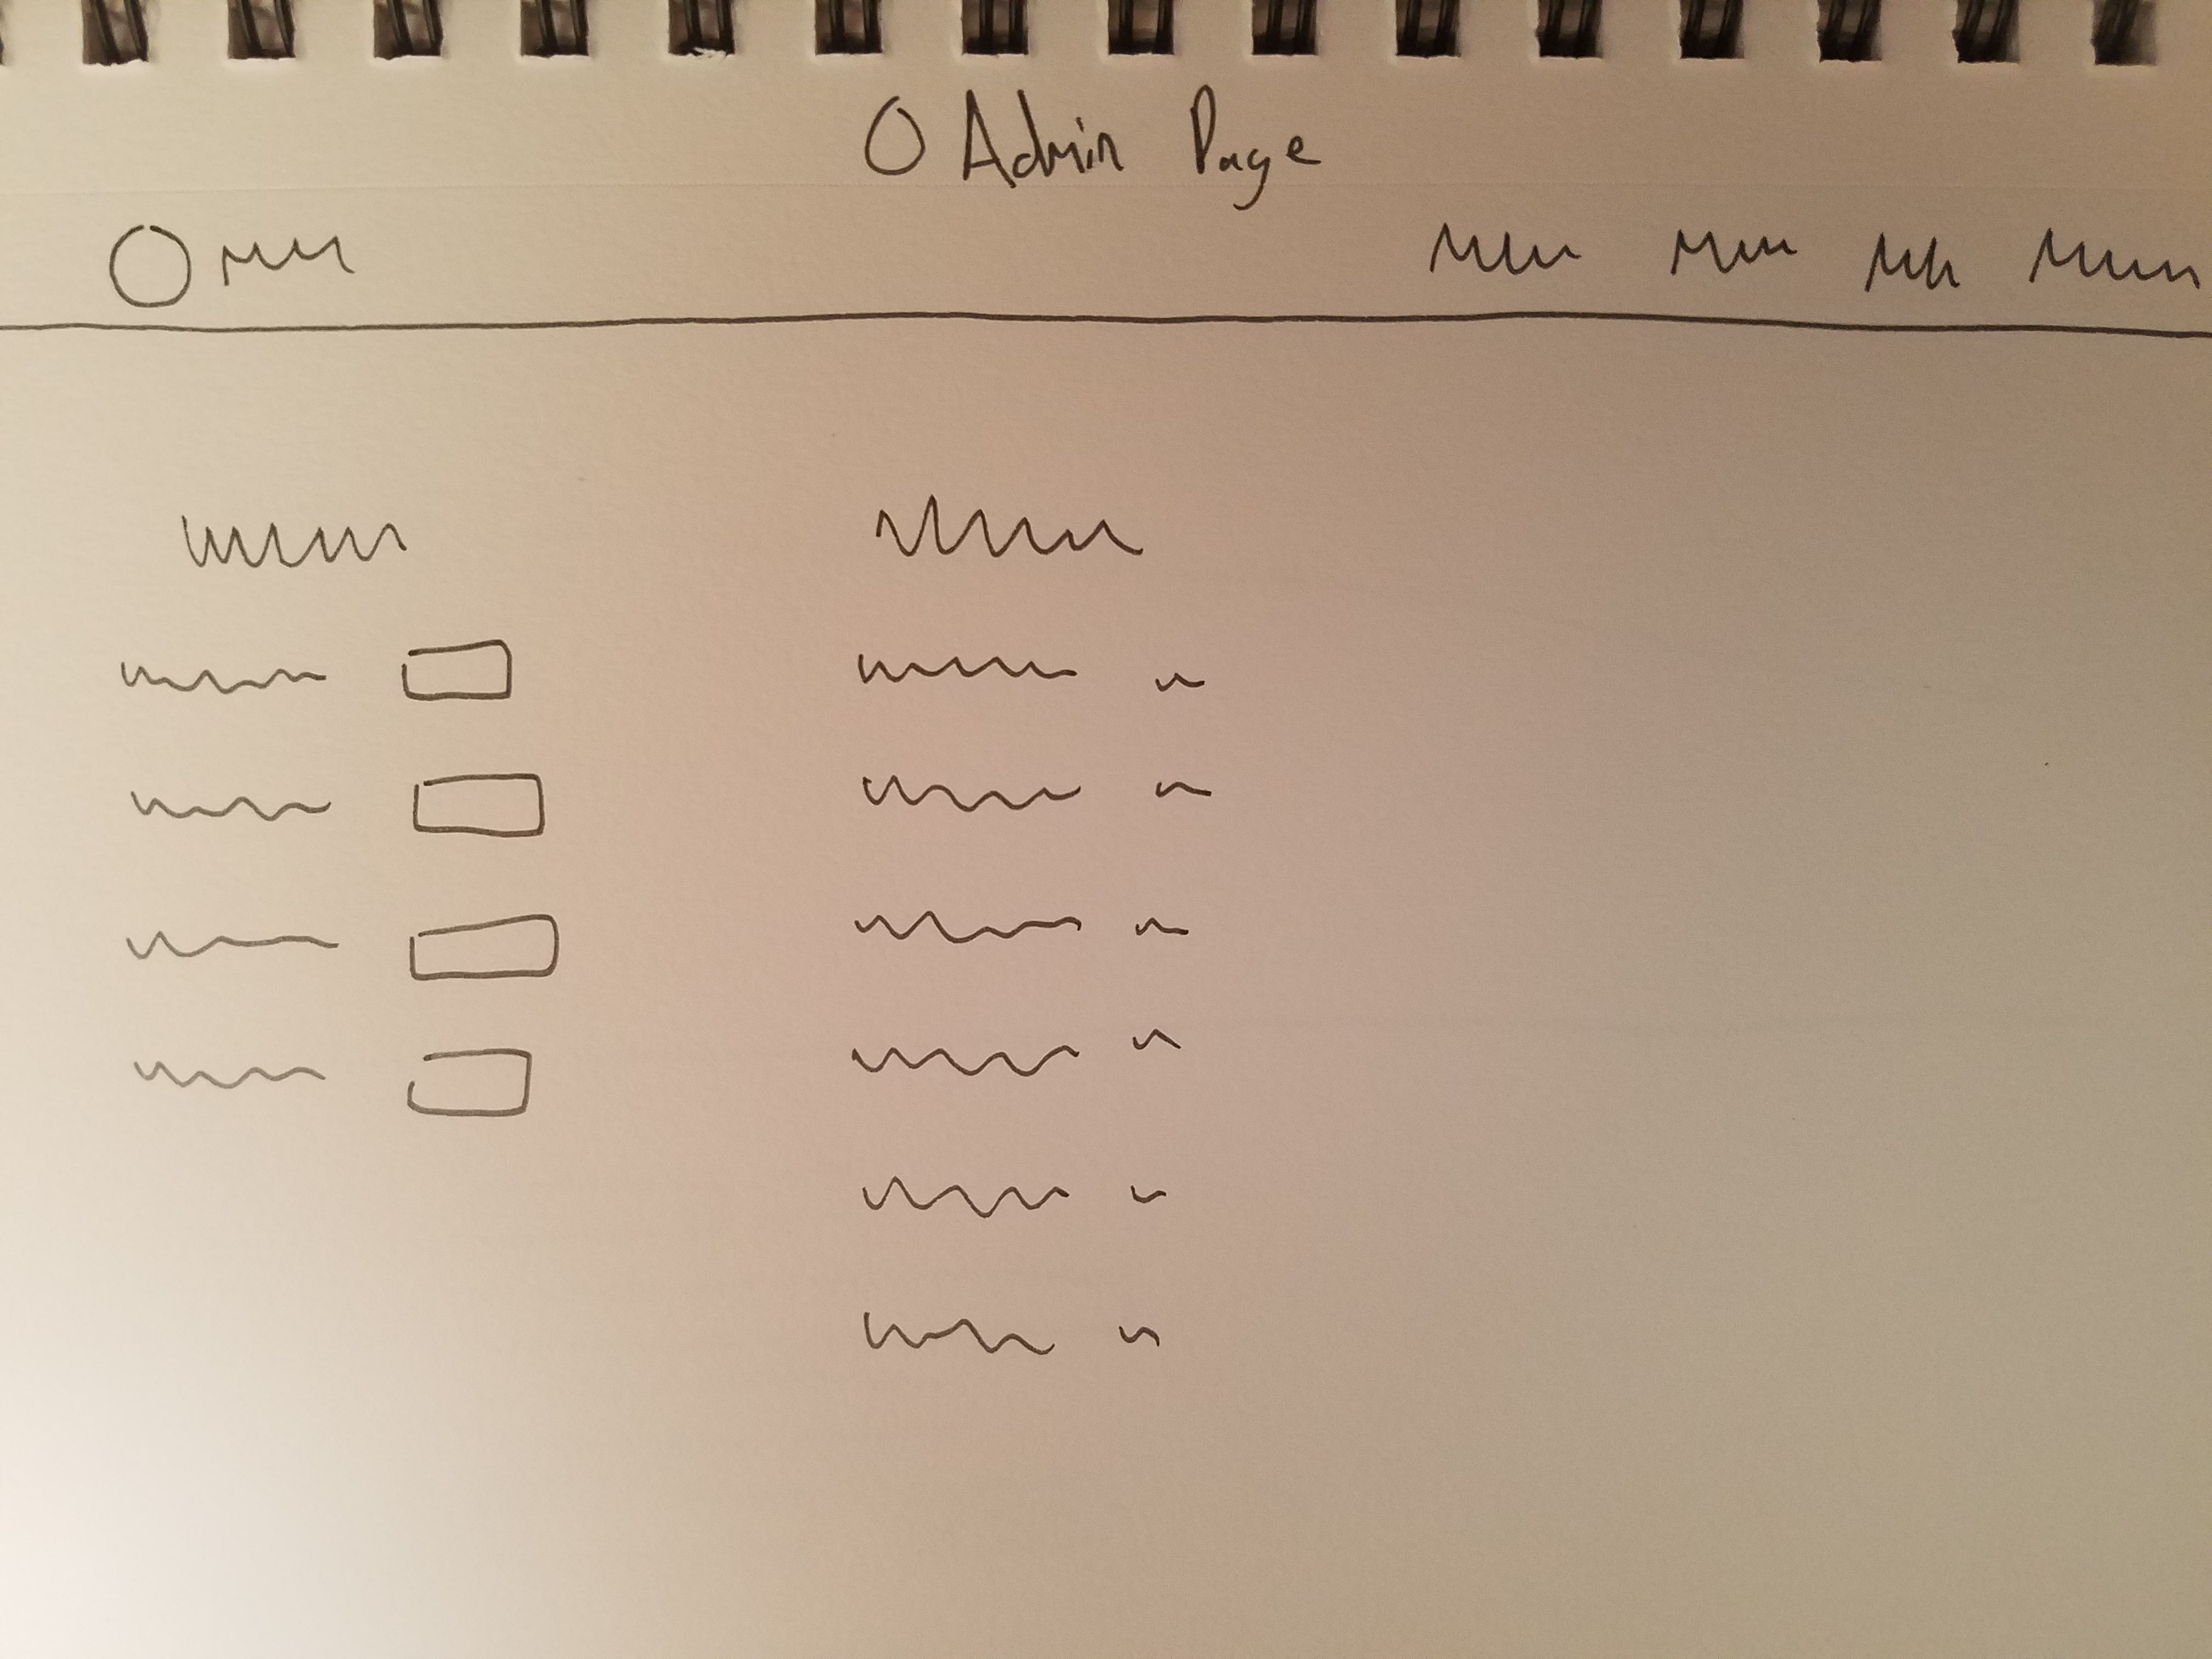 O Admin Page